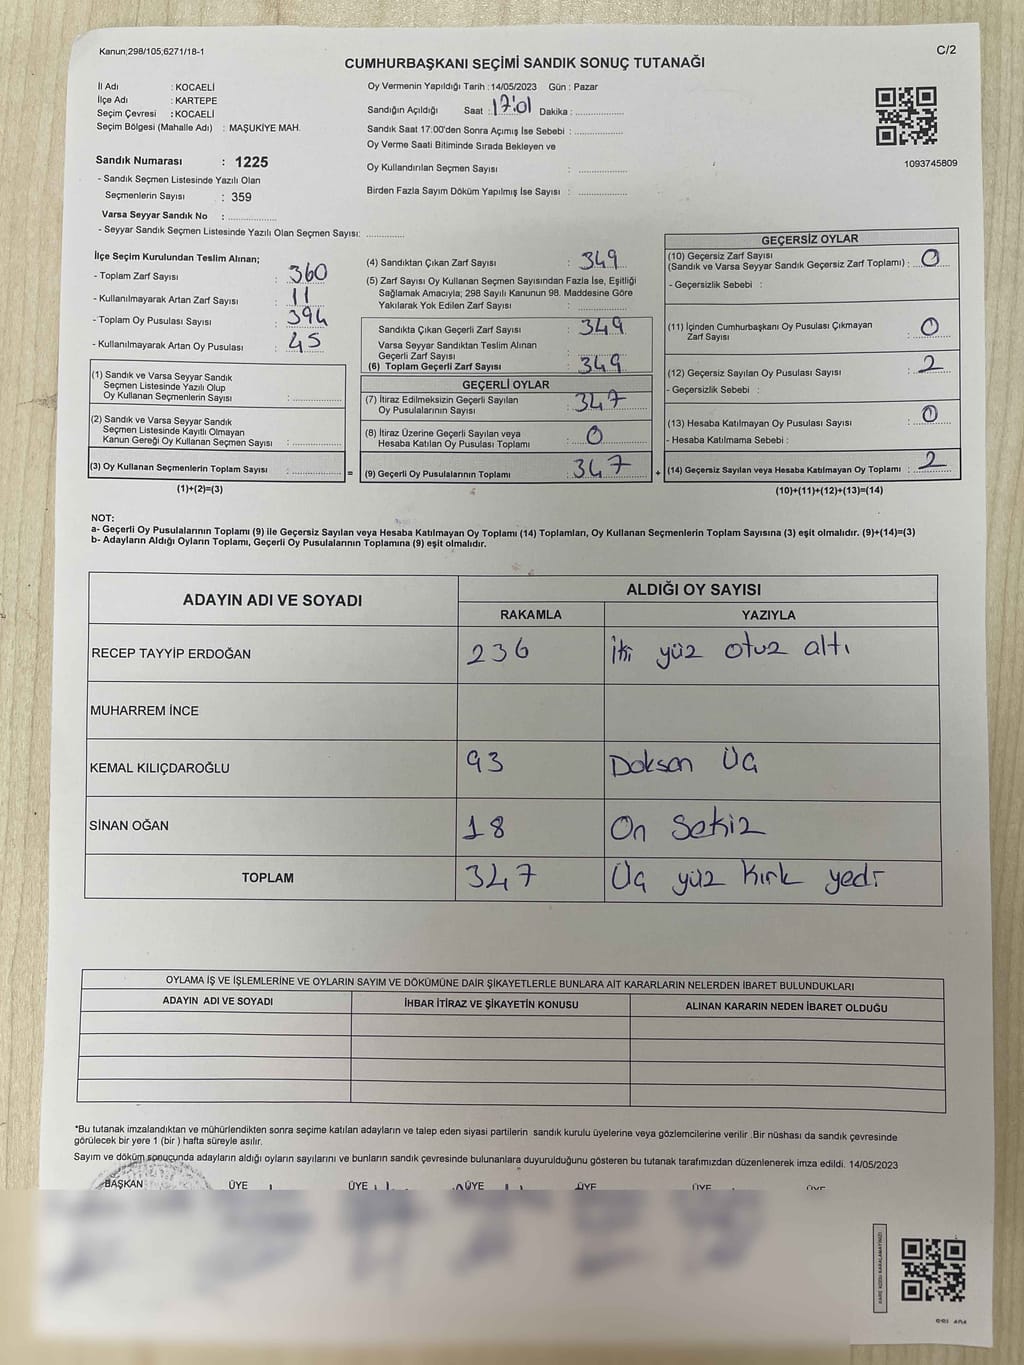 Kanun;298/105,6271/18-1
C/2
CUMHURBAŞKANI SEÇİMİ SANDIK SONUÇ TUTANAĞI
İl Adı : KOCAELİ
İlçe Adı : KARTEPE
Seçim Çevresi : KOCAELİ
Seçim Bölgesi (Mahalle Adı) : MAŞUKİYE MAH.
Sandık Numarası : 1225
- Sandık Seçmen Listesinde Yazılı Olan
Seçmenlerin Sayısı : 359
Varsa Seyyar Sandık No : ..............
- Seyyar Sandık Seçmen Listesinde Yazılı Olan Seçmen Sayısı: ............
Oy Vermenin Yapıldığı Tarih : 14/05/2023 Gün : Pazar
Sandığın Açıldığı Saat : 17:01 Dakika : ..............
Sandık Saat 17:00'den Sonra Açımış İse Sebebi : ..............
Oy Verme Saati Bitiminde Sırada Bekleyen ve
Oy Kullandırılan Seçmen Sayısı : ..............
Birden Fazla Sayım Döküm Yapılmış İse Sayısı : ..............
1093745809
İlçe Seçim Kurulundan Teslim Alınan;
- Toplam Zarf Sayısı : 360
- Kullanılmayarak Artan Zarf Sayısı : 11
- Toplam Oy Pusulası Sayısı : 394
- Kullanılmayarak Artan Oy Pusulası : 45
(1) Sandık ve Varsa Seyyar Sandık
Seçmen Listesinde Yazılı Olup
Oy Kullanan Seçmenlerin Sayısı : ..............
(2) Sandık ve Varsa Seyyar Sandık
Seçmen Listesinde Kayıtlı Olmayan
Kanun Gereği Oy Kullanan Seçmen Sayısı : ..............
(3) Oy Kullanan Seçmenlerin Toplam Sayısı : .............. =
(1)+(2)=(3)
(4) Sandıktan Çıkan Zarf Sayısı : 349
(5) Zarf Sayısı Oy Kullanan Seçmen Sayısından Fazla İse, Eşitliği
Sağlamak Amacıyla; 298 Sayılı Kanunun 98. Maddesine Göre
Yakılarak Yok Edilen Zarf Sayısı : ..............
Sandıkta Çıkan Geçerli Zarf Sayısı : 349
Varsa Seyyar Sandıktan Teslim Alınan
Geçerli Zarf Sayısı :
(6) Toplam Geçerli Zarf Sayısı : 349
GEÇERLİ OYLAR
(7) İtiraz Edilmeksizin Geçerli Sayılan
Oy Pusulalarının Sayısı : 347
(8) İtiraz Üzerine Geçerli Sayılan veya
Hesaba Katılan Oy Pusulası Toplamı : 0
(9) Geçerli Oy Pusulalarının Toplamı : 347 +
GEÇERSİZ OYLAR
(10) Geçersiz Zarf Sayısı
(Sandık ve Varsa Seyyar Sandık Geçersiz Zarf Toplamı) : 0
- Geçersizlik Sebebi :
(11) İçinden Cumhurbaşkanı Oy Pusulası Çıkmayan
Zarf Sayısı : 0
(12) Geçersiz Sayılan Oy Pusulası Sayısı : 2
- Geçersizlik Sebebi :
(13) Hesaba Katılmayan Oy Pusulası Sayısı : 0
- Hesaba Katılmama Sebebi :
(14) Geçersiz Sayılan veya Hesaba Katılmayan Oy Toplamı : 2
(10)+(11)+(12)+(13)=(14)
NOT:
a- Geçerli Oy Pusulalarının Toplamı (9) ile Geçersiz Sayılan veya Hesaba Katılmayan Oy Toplamı (14) Toplamları, Oy Kullanan Seçmenlerin Toplam Sayısına (3) eşit olmalıdır. (9)+(14)=(3)
b- Adayların Aldığı Oyların Toplamı, Geçerli Oy Pusulalarının Toplamına (9) eşit olmalıdır.
ADAYIN ADI VE SOYADI ALDIĞI OY SAYISI
RAKAMLA YAZIYLA
RECEP TAYYİP ERDOĞAN 236 İki yüz otuz altı
MUHARREM İNCE
KEMAL KILIÇDAROĞLU 93 Doksan Üç
SİNAN OĞAN 18 On Sekiz
TOPLAM 347 Üç yüz kırk yedi
OYLAMA İŞ VE İŞLEMLERİNE VE OYLARIN SAYIM VE DÖKÜMÜNE DAİR ŞİKAYETLERLE BUNLARA AİT KARARLARIN NELERDEN İBARET BULUNDUKLARI
ADAYIN ADI VE SOYADI İHBAR İTİRAZ VE ŞİKAYETİN KONUSU ALINAN KARARIN NEDEN İBARET OLDUĞU
*Bu tutanak imzalandıktan ve mühürlendikten sonra seçime katılan adayların ve talep eden siyasi partilerin sandık kurulu üyelerine veya gözlemcilerine verilir .Bir nüshası da sandık çevresinde
görülecek bir yere 1 (bir ) hafta süreyle asılır.
Sayım ve döküm sonucunda adayların aldığı oyların sayılarını ve bunların sandık çevresinde bulunanlara duyurulduğunu gösteren bu tutanak tarafımızdan düzenlenerek imza edildi. 14/05/2023
BAŞKAN ÜYE ÜYE ÜYE ÜYE ÜYE ÜYE
KARE KODU KARALAMAYINIZ!